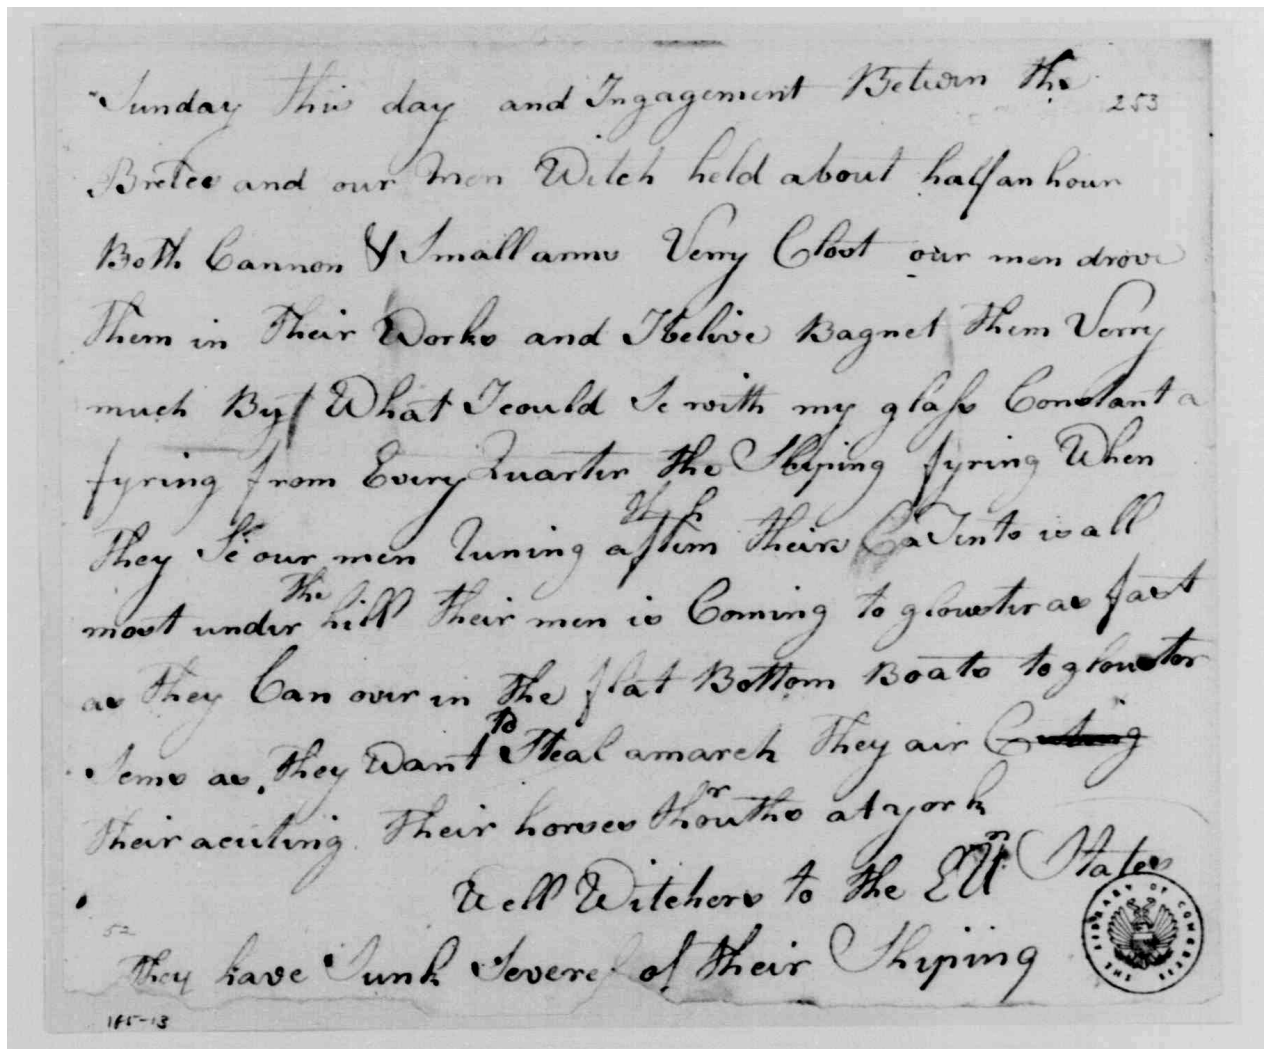 Sunday this day and Ingagement Betwin the
253
Bretes and our men Witch held about half an hour
Both Cannon & Small arms Verry Clost our men drove
them in their Works and I belive Bagnet them Verry
much By What I could Se with my glass Constant a
fyring from Every Quarter the Shiping fyring When
they Se our men Runing their is all
the
most under hill their men is Coming to glouster as fast
as they Can over in the flat Bottom Boats to glouster
to
Sems as they Want Steal a march they air
their acuting their horses throuths at york
Well Witchers to the Un States
52
they have Sunk of their Shiping
THE LIBRARY OF CONGRESS
185-13